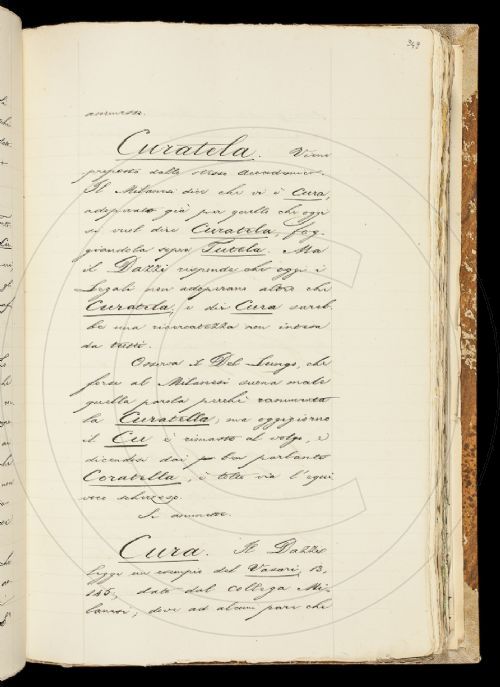 343
ammesso.
Curatela. Viene
proposto dallo stesso Accademico.
Il Milanesi dice che vi è Cura,
adoprato già per quello che oggi
si vuol dire Curatela, fog-
giandola sopra Tutela. Ma
il Dazzi risponde che oggi i
Legali non adoperano altro che
Curatela, e dir Cura sareb-
be una ricercatezza non intesa
da tutti.
Osserva il Del Lungo, che
forse al Milanesi suona male
quella parola perchè rammenta
la Curatella, ma oggigiorno
il Cu è rimasto al volgo, e
dicendosi dai ben parlanti
Coratella, è tolto via l'equi
voco scherzoso.
Si ammette.
Cura. Il Dazzi
legge un esempio del Vasari, 13,
145, dato dal collega Mi-
lanesi, dove ad alcuni pare che